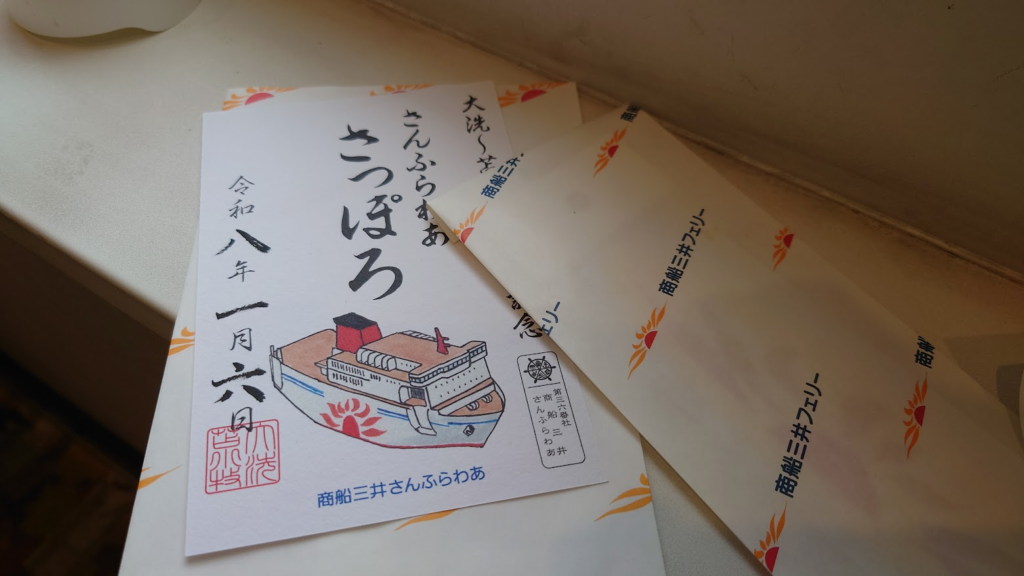 大洗〜苫
さんふらわあ
さっぽろ
令和八年一月六日
念
第三六番社
商船三井
さんふらわあ
大洗
苫小牧
商船三井さんふらわあ
商船三井フェリー
商船三井フェリー
商船
商船
ェリー